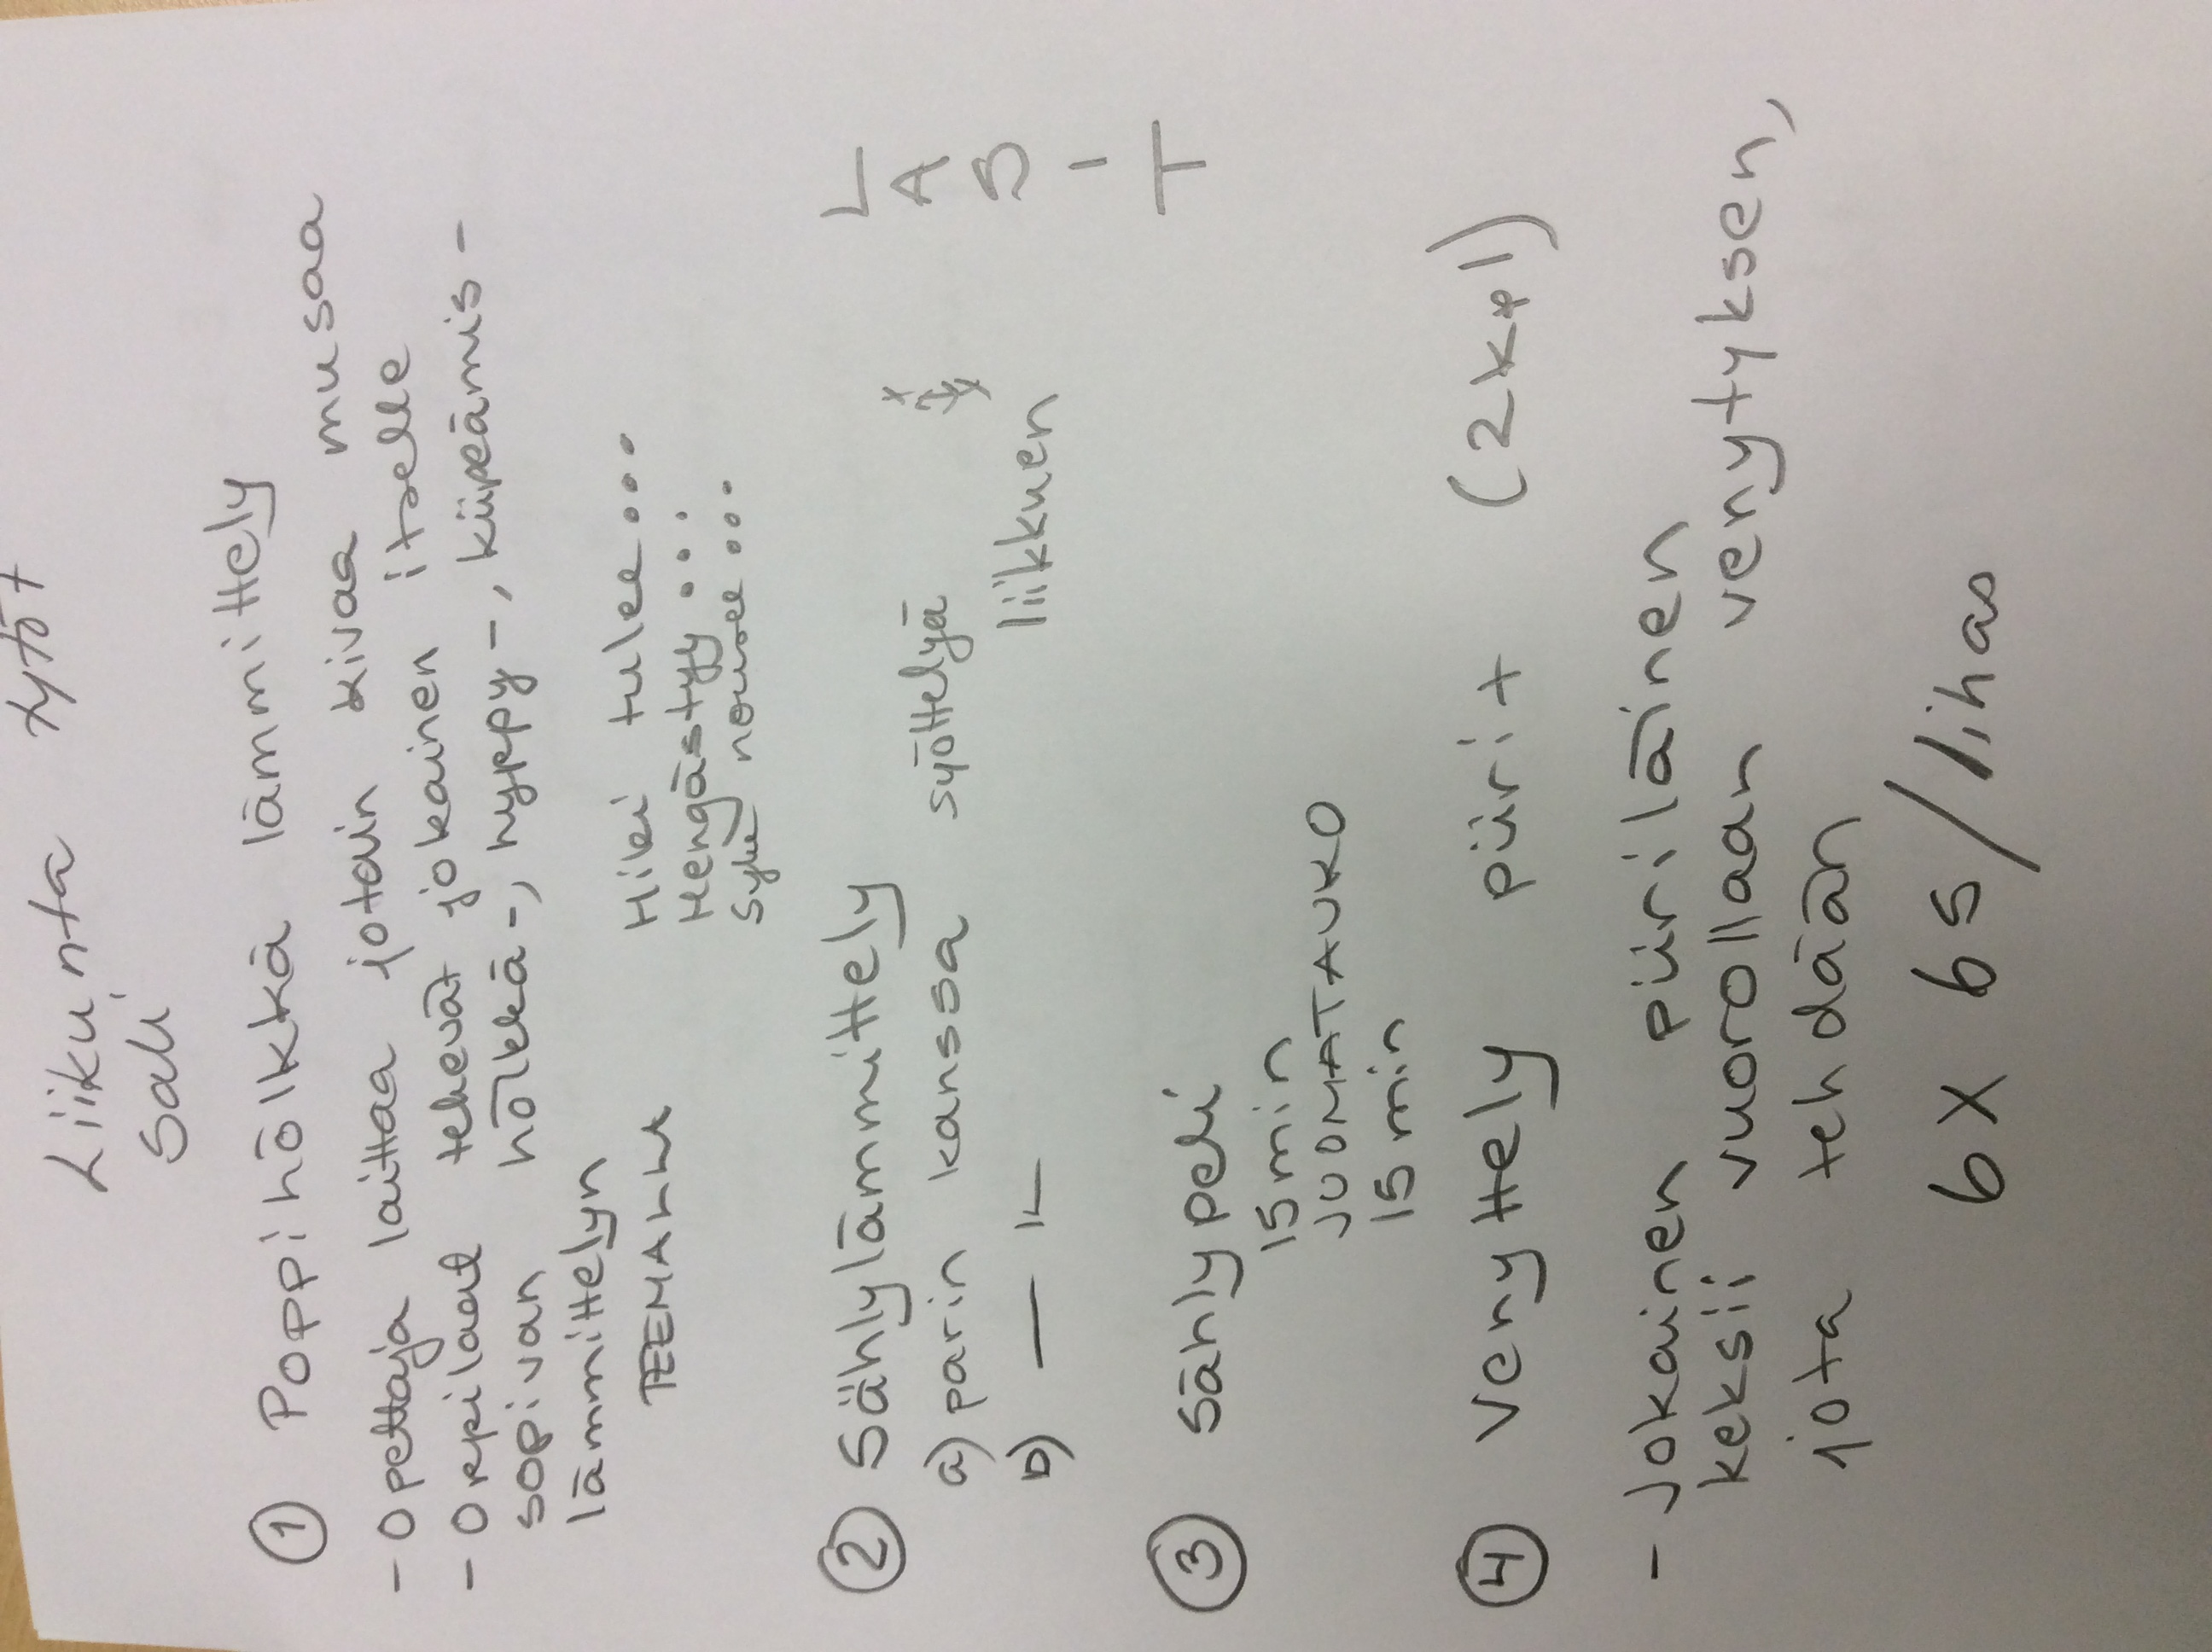 Liikunta tytöt
Sali
① Poppihölkkä lämmittely
- Opettaja laittaa jotain kivaa musaa
- Oppilaat tekevät jokainen itselle
sopivan hölkkä-, hyppy-, kiipeämis-
lämmittelyn
TEEMALLA Hiki tulee....
Hengästyy...
syke nousee...
② Sählylämmittely
a) parin kanssa syöttelyä
b) — " — liikkuen
LABIT
③ Sählypeli
15 min
JUOMATAUKO
15 min
④ Venyttely piirit (2 kpl)
- Jokainen piiriläinen
keksii vuorollaan venytyksen,
jota tehdään
6 x 6 s / lihas